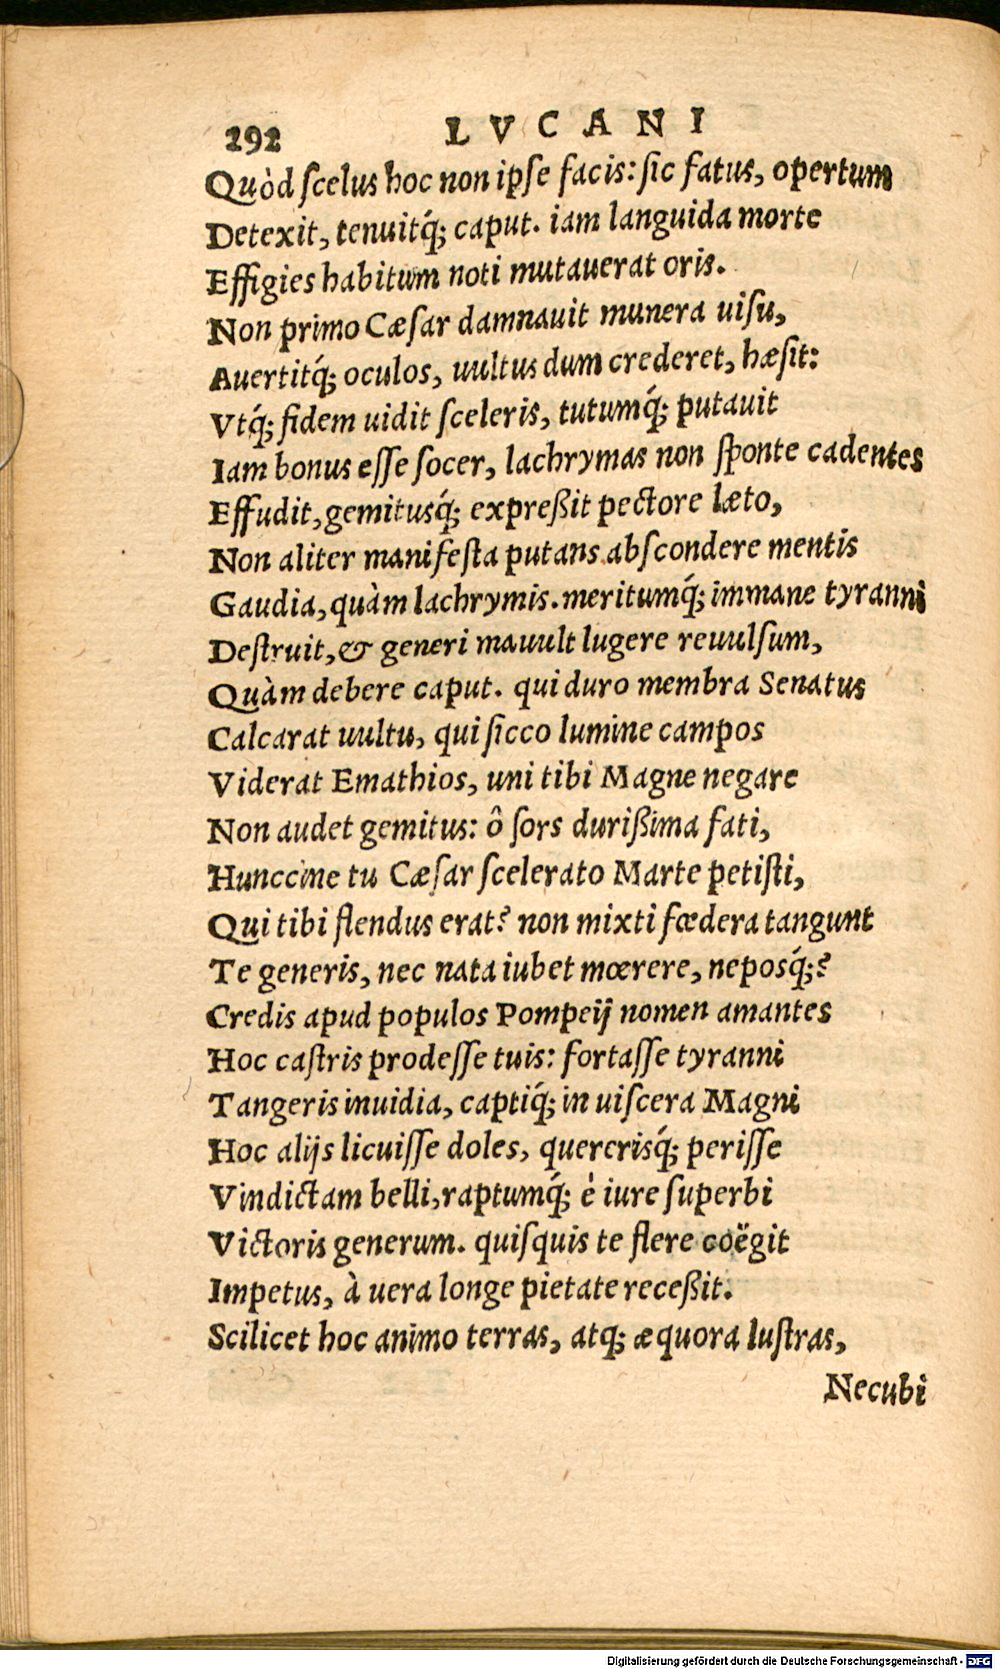 292 LVCANI
Quòd ſcelus hoc non ipſe facis: ſic fatus, opertum
Detexit, tenuitq́; caput. iam languida morte
Effigies habitum noti mutauerat oris.
Non primo Cæſar damnauit munera uiſu,
Auertitq́; oculos, uultus dum crederet, hæſit:
Vtq́; fidem uidit ſceleris, tutumq́; putauit
Iam bonus eſſe ſocer, lachrymas non ſponte cadentes
Effudit, gemitusq́; expreßit pectore læto,
Non aliter manifeſta putans abſcondere mentis
Gaudia, quàm lachrymis. meritumq́; immane tyranni
Deſtruit, & generi mauult lugere reuulſum,
Quàm debere caput. qui duro membra Senatus
Calcarat uultu, qui ſicco lumine campos
Viderat Emathios, uni tibi Magne negare
Non audet gemitus: ô ſors durißima fati,
Hunccine tu Cæſar ſcelerato Marte petiſti,
Qui tibi flendus erat? non mixti fœdera tangunt
Te generis, nec nata iubet mœrere, neposq́;?
Credis apud populos Pompeij nomen amantes
Hoc caſtris prodeſſe tuis: fortaſſe tyranni
Tangeris inuidia, captiq́; in uiſcera Magni
Hoc alijs licuiſſe doles, quererisq́; periſſe
Vindictam belli, raptumq́; è iure ſuperbi
Victoris generum. quiſquis te flere coëgit
Impetus, à uera longe pietate receßit.
Scilicet hoc animo terras, atq; æquora luſtras,
Necubi
Digitalisierung gefördert durch die Deutsche Forschungsgemeinschaft - DFG